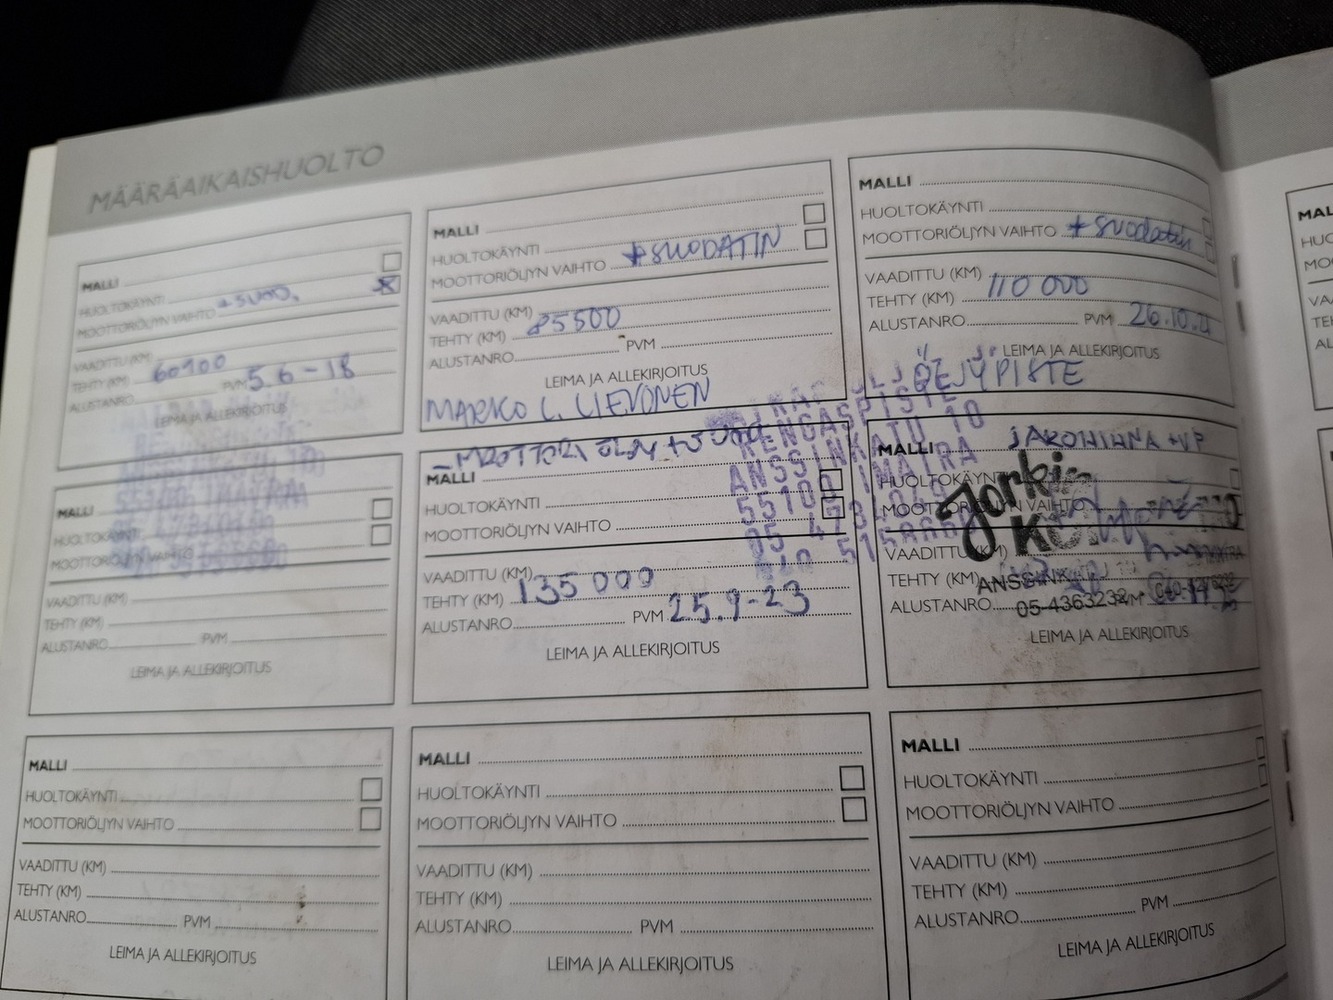 MÄÄRÄAIKAISHUOLTO
MALLI
HUOLTOKÄYNTI
MOOTTORIÖLJYN VAIHTO +SUOD.
VAADITTU (KM)
TEHTY (KM) 60100
ALUSTANRO PVM 5.6-18
LEIMA JA ALLEKIRJOITUS
MALLI
HUOLTOKÄYNTI
MOOTTORIÖLJYN VAIHTO +SUODATIN
VAADITTU (KM)
TEHTY (KM) 85500
ALUSTANRO PVM
LEIMA JA ALLEKIRJOITUS
MARKO L. LIEVONEN
MALLI
HUOLTOKÄYNTI
MOOTTORIÖLJYN VAIHTO +suodatin
VAADITTU (KM)
TEHTY (KM) 110 000
ALUSTANRO PVM 26.10.21
LEIMA JA ALLEKIRJOITUS
ÖLJYPISTE
MALLI
HUOLTOKÄYNTI
MOOTTORIÖLJYN VAIHTO
VAADITTU (KM)
TEHTY (KM)
ALUSTANRO PVM
LEIMA JA ALLEKIRJOITUS
RENGASPISTE
ANSSINKATU 10
55100 IMATRA
MALLI
HUOLTOKÄYNTI
MOOTTORIÖLJYN VAIHTO
VAADITTU (KM)
TEHTY (KM) 135 000
ALUSTANRO PVM 25.9-23
LEIMA JA ALLEKIRJOITUS
JAKOHIHNA +VP
MALLI
HUOLTOKÄYNTI
MOOTTORIÖLJYN VAIHTO
VAADITTU (KM)
TEHTY (KM)
ALUSTANRO
05-4363232
LEIMA JA ALLEKIRJOITUS
MALLI
HUOLTOKÄYNTI
MOOTTORIÖLJYN VAIHTO
VAADITTU (KM)
TEHTY (KM)
ALUSTANRO PVM
LEIMA JA ALLEKIRJOITUS
MALLI
HUOLTOKÄYNTI
MOOTTORIÖLJYN VAIHTO
VAADITTU (KM)
TEHTY (KM)
ALUSTANRO PVM
LEIMA JA ALLEKIRJOITUS
MALLI
HUOLTOKÄYNTI
MOOTTORIÖLJYN VAIHTO
VAADITTU (KM)
TEHTY (KM)
ALUSTANRO PVM
LEIMA JA ALLEKIRJOITUS